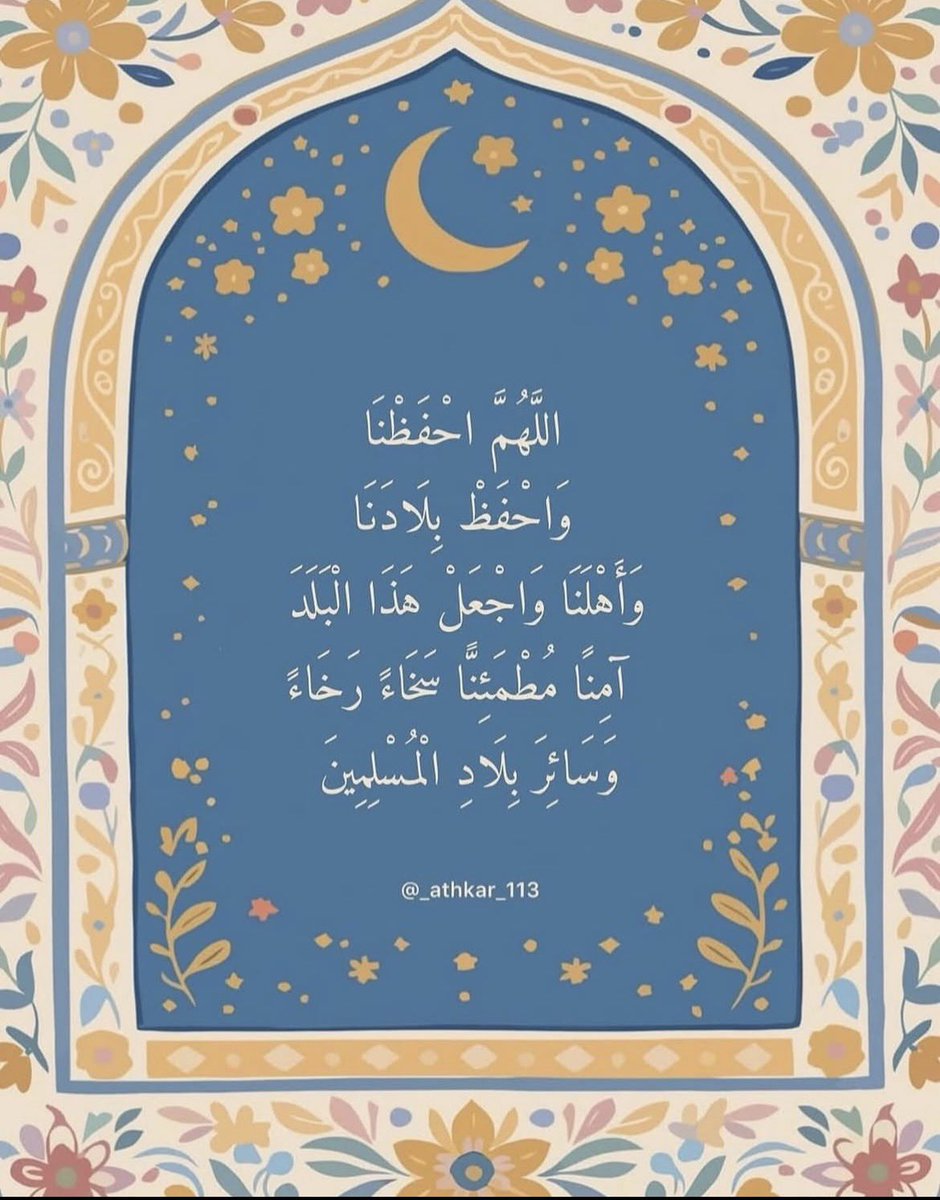 اللَّهُمَّ احْفَظْنَا
وَاحْفَظْ بِلَادَنَا
وَأَهْلَنَا وَاجْعَلْ هَذَا الْبَلَدَ
آمِنًا مُطْمَئِنًّا سَخَاءً رَخَاءً
وَسَائِرَ بِلَادِ الْمُسْلِمِينَ
@_athkar_113